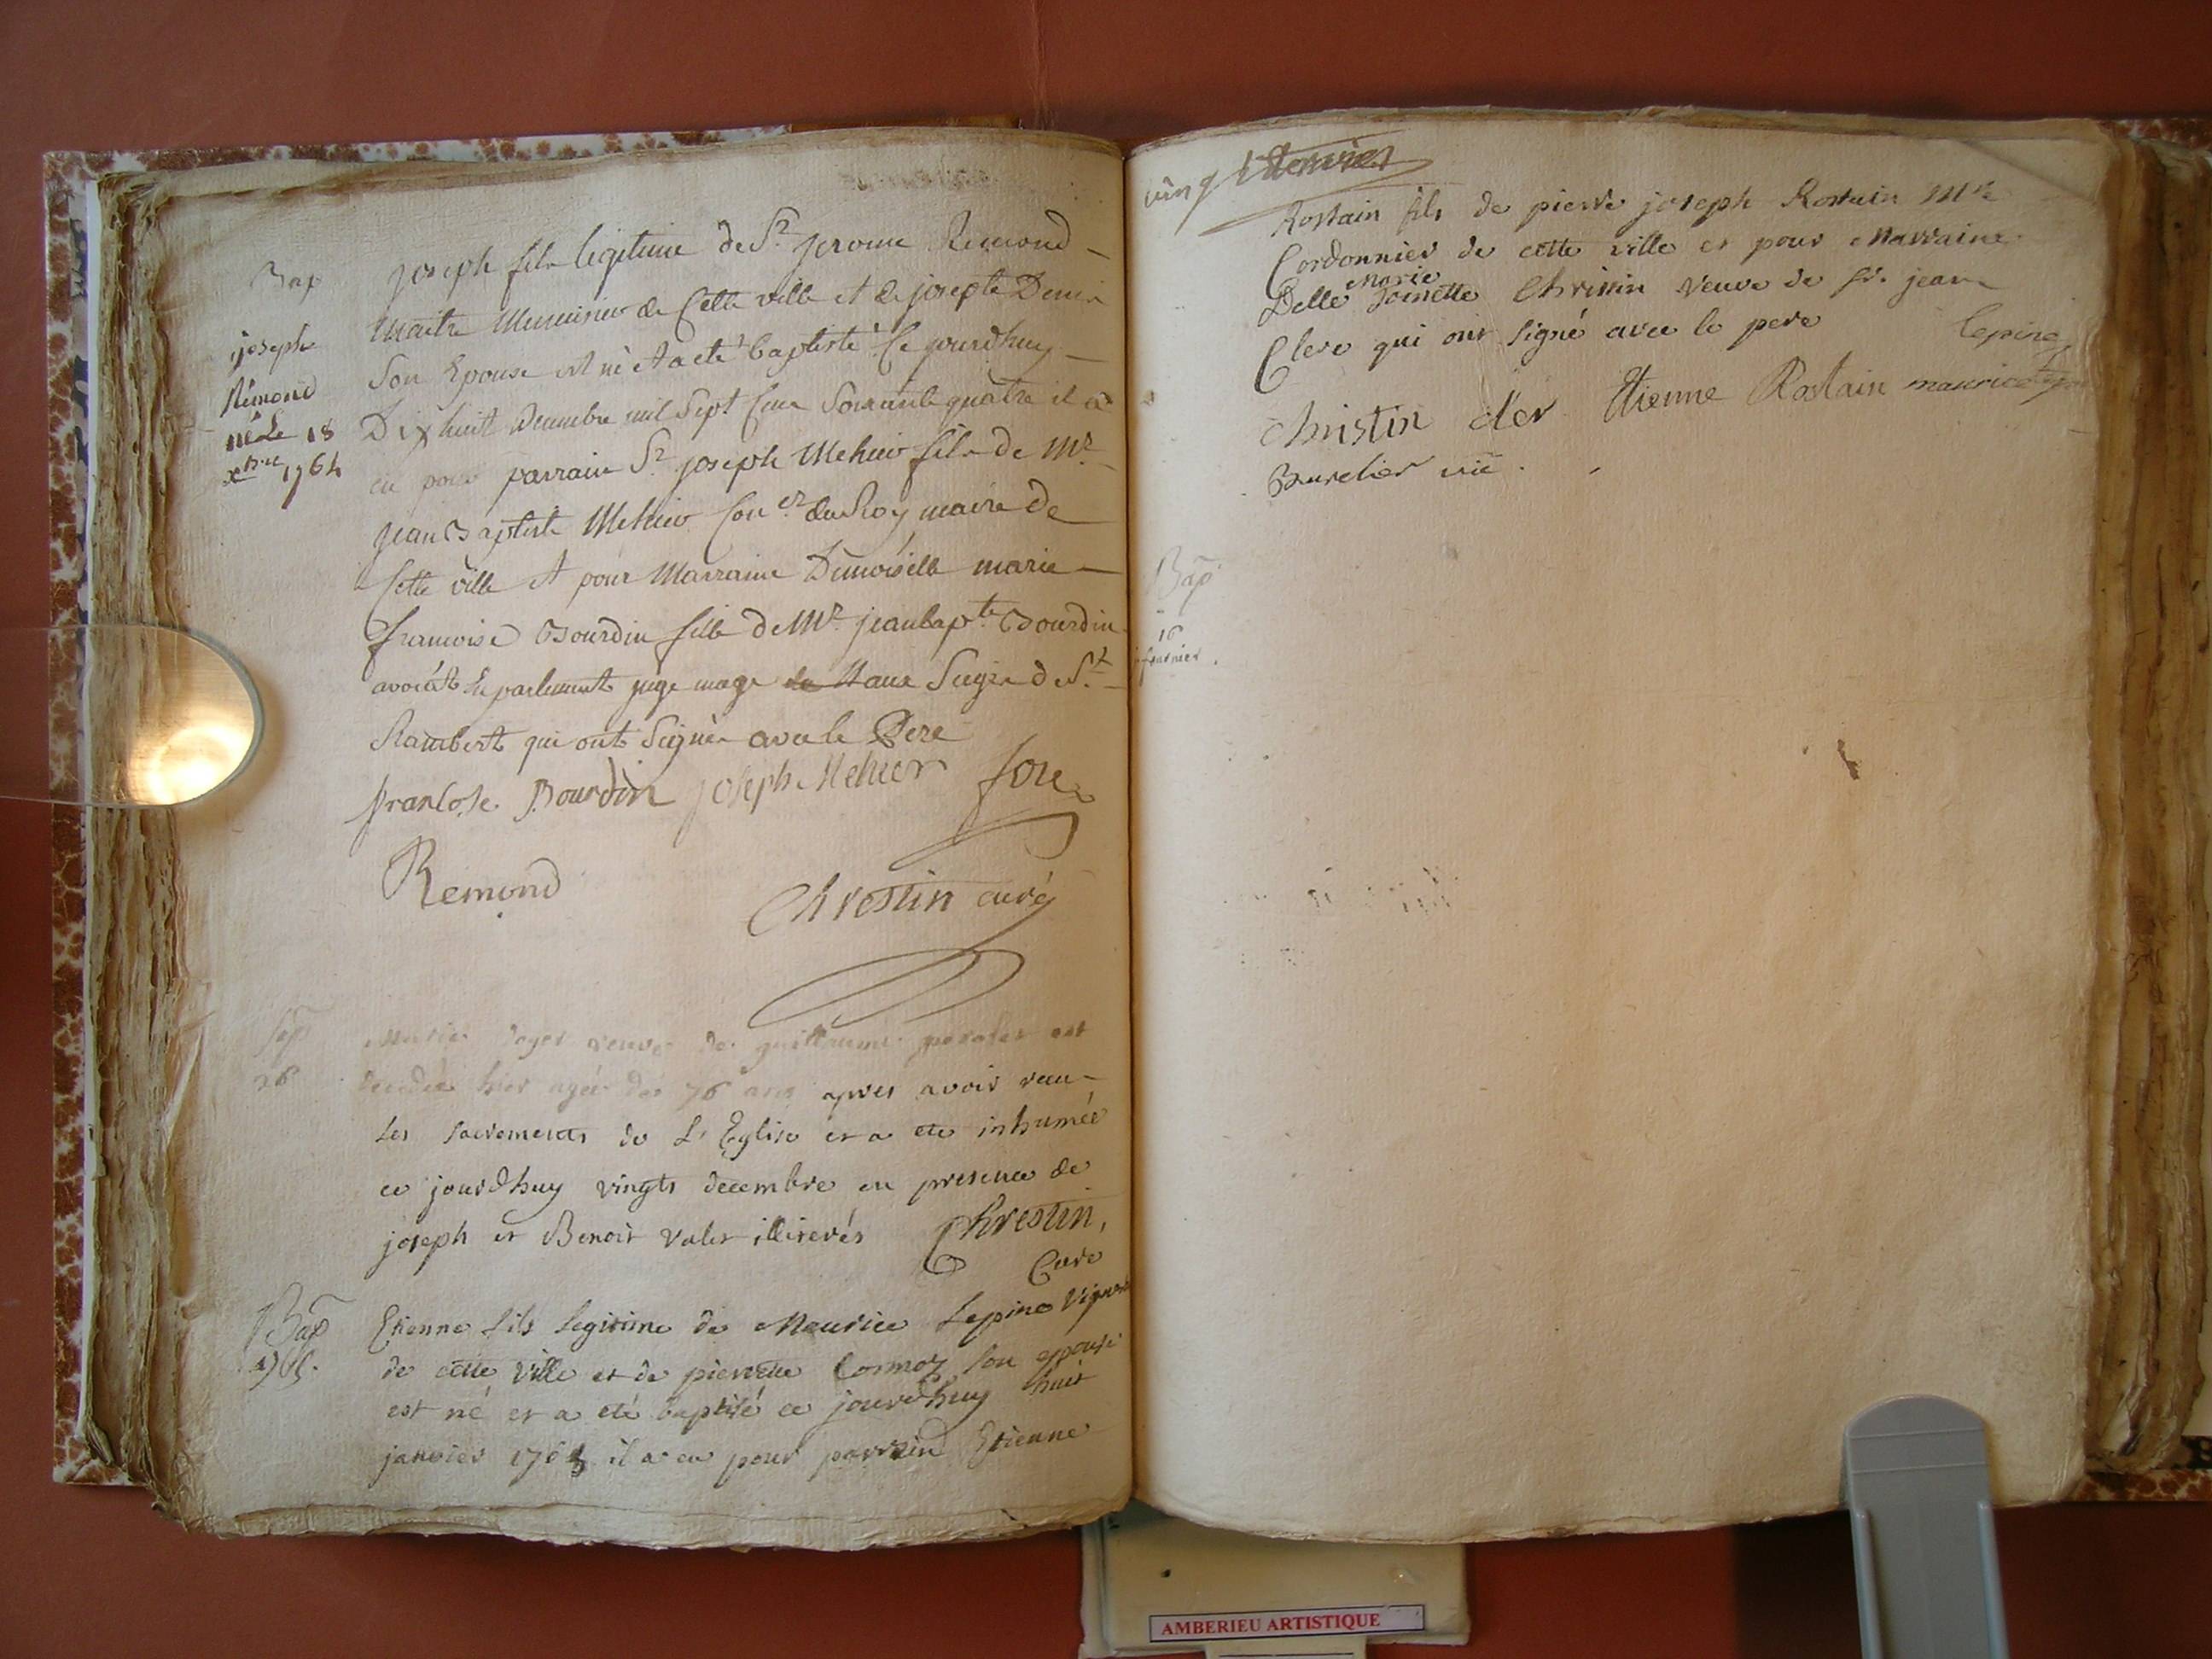 Bap
joseph
Rémond
né Le 18
xbre 1764
joseph fils legitime de Sr. jerome Remond
maitre Menuisier de Cette ville et de josepte Denis
Son Epouse est né et a eté baptisté Ce jourdhuy
Dix huit decembre mil Sept Cens Soixante quatre il a
eu pour parrain Sr. joseph Mehier fils de Mr.
jean Baptiste Mehier Coner. du Roy maire de
Cette ville et pour Marraine Demoiselle marie
francoise Bourdin fille de Mr. jean bapte. Bourdin
avocat En parlement juge mage Sieges de St.
Rambert qui ont Signés avec le Pere
francose Bourdin joseph Mehier
Remond
Chrestin curé
Sep
26
Marie veuve de guillaume est
decedée hier agée de 76 ans apres avoir recu
les sacrements de L'Eglise et a ete inhumée
ce jourdhuy vingts decembre en presence de
joseph et Benoit valet illiterés Chrestin,
Curé
Bap
1765.
Etienne fils legitime de Maurice Lepine vigneron
de cette ville et de pierrette son epouse
est né et a eté baptisé ce jourdhuy huit
janvier 1765 il a eu pour parrain Etienne
vingt
Rostain fils de pierre joseph Rostain Mre
Cordonnier de cette ville et pour Marraine
Marie
Delle Toinette Christin veuve de sr. jean
Clerc qui ont signé avec le pere
lepine
christin cler Etienne Rostain maurice
Burelier vic.
Bap
16
AMBERIEU ARTISTIQUE